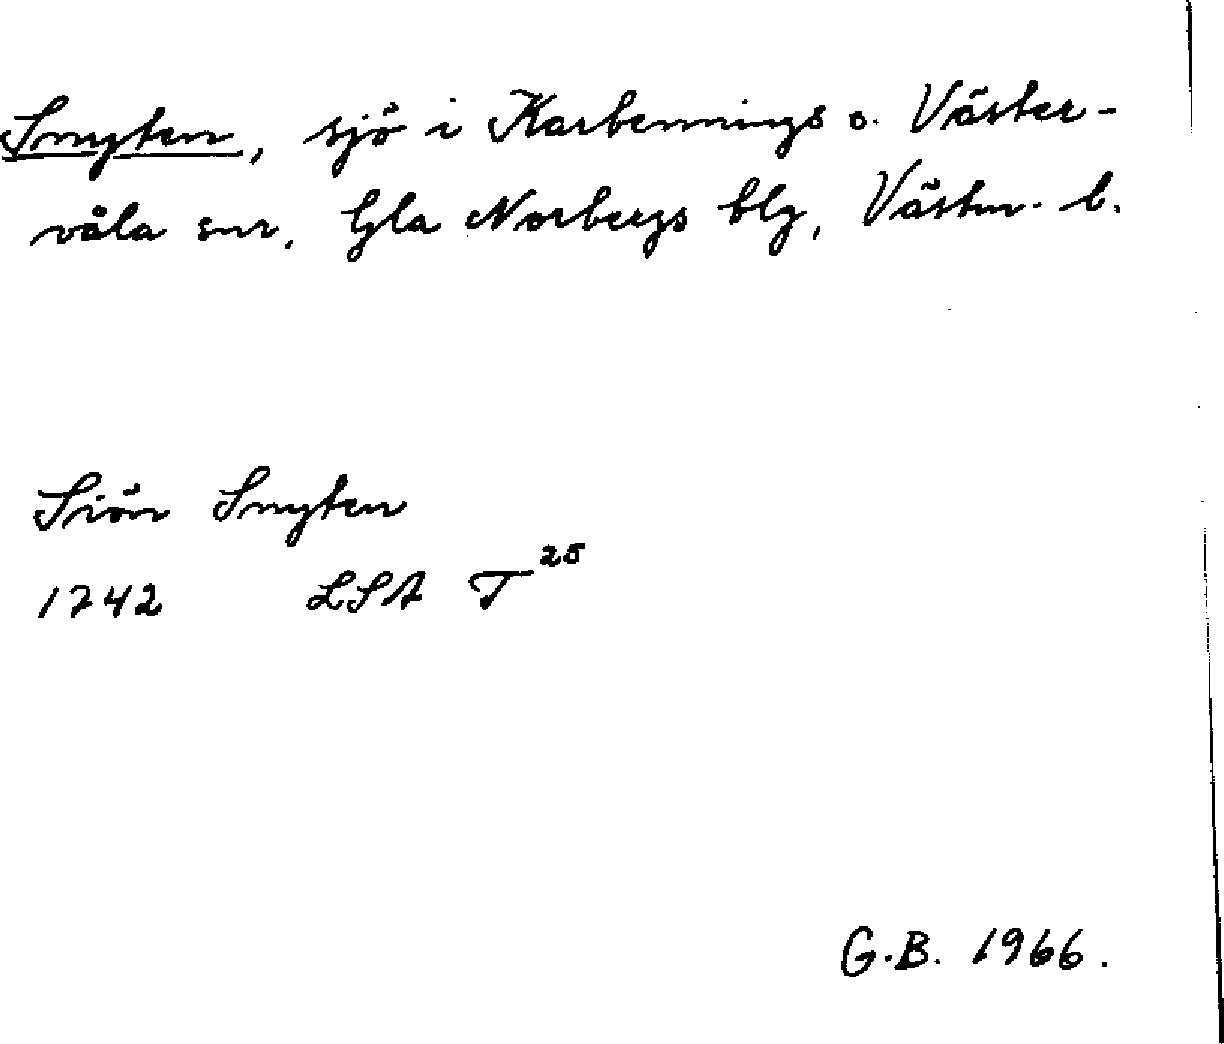 Snyten, sjö i Karbennings o. Väster-
våla snr, Gla Norbergs blg, Västm. l.
Siön Snyten
1742 LSA T 25
G.B. 1966.